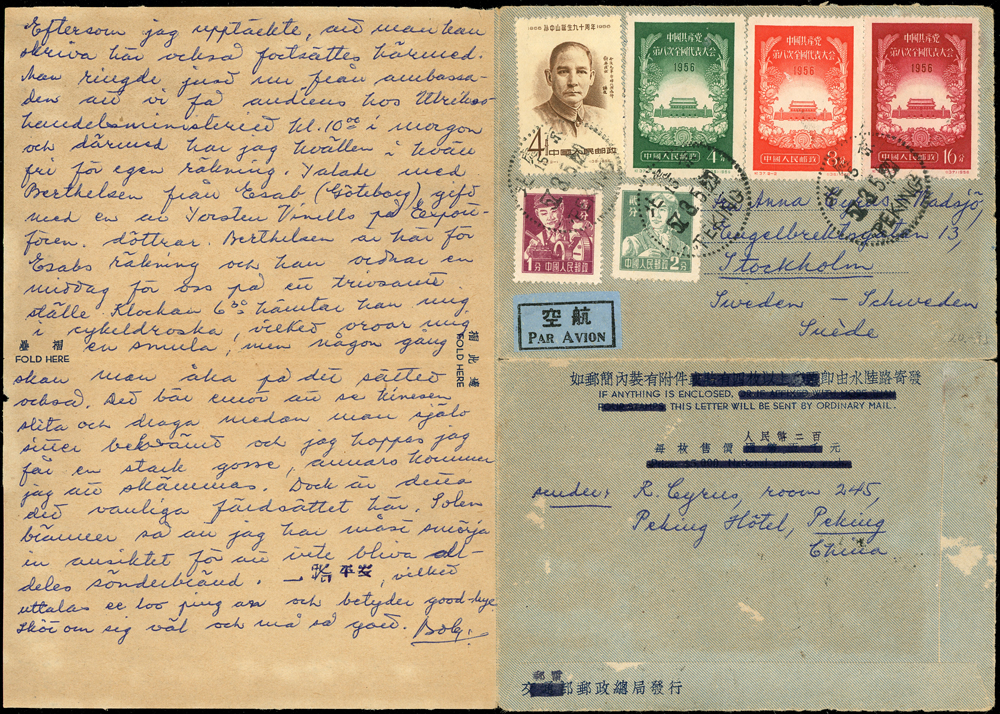 Eftersom jag upptäckte, att man kan
skriva här också fortsättes härmed.
Man ringde just nu från ambassa-
den att vi få audiens hos Utrikes-
handelsministeriet kl. 10⁰⁰ i morgon
och därmed har jag kvällen i kväll
fri för egen räkning. Talade med
Berthelsen från Esab (Göteborg) gift
med en av Torsten Vinells på Export-
fören. döttrar. Berthelsen är här för
Esabs räkning och han ordnar en
middag för oss på ett trivsamt
ställe. Klockan 6³⁰ hämtar han mig
i cykeldroska, vilket oroar mig
en smula, men någon gång
疊 摺
FOLD HERE
摺 此 處
FOLD HERE
skall man åka på det sättet
också. Det bär emot att se kinesen
slita och draga medan man själv
sitter bekvämt och jag hoppas jag
får en stark gosse, annars kommer
jag att skämmas. Dock är detta
det vanliga färdsättet här. Solen
bränner så att jag har måst smörja
in ansiktet för att inte bliva all-
deles sönderbränd. 一路平安, vilket
uttalas ee loo ping an och betyder good-bye
Sköt om sig väl och må så gott. Bob.
1866 孙中山诞生九十周年 1956
4分 中國人民郵政
中国共产党
第八次全国代表大会
1956
中國人民郵政 4分
中国共产党
第八次全国代表大会
1956
中國人民郵政 8分
中国共产党
第八次全国代表大会
1956
中國人民郵政 16分
1分 中國人民郵政
中國人民郵政 2分
PEKING
PEKING
Anna
Engelbrektsgatan 13,
Stockholm
Sweden – Schweden
Suède
空航
PAR AVION
如郵簡內裝有附件 即由水陸路寄發
IF ANYTHING IS ENCLOSED,
THIS LETTER WILL BE SENT BY ORDINARY MAIL.
人民幣二百
每 枚 售 價 元
sender: R. Cyrus, room 245,
Peking Hôtel, Peking
China
郵電
部郵政總局發行